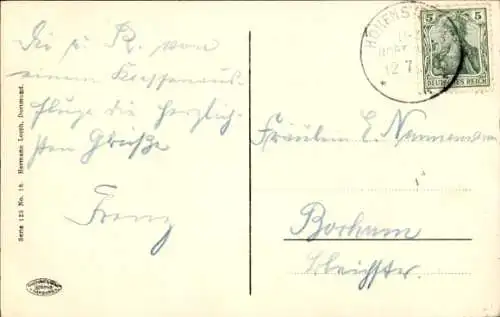 Dir u. R. von
einem Klassenaus-
fluge die herzlich-
sten Grüße
Franz
Serie 123 No. 18. Hermann Lorch, Dortmund.
HOHENS
12 7
5 5
DEUTSCHES REICH
Fräulein E. Nennemann
Bochum
Bleichstr.